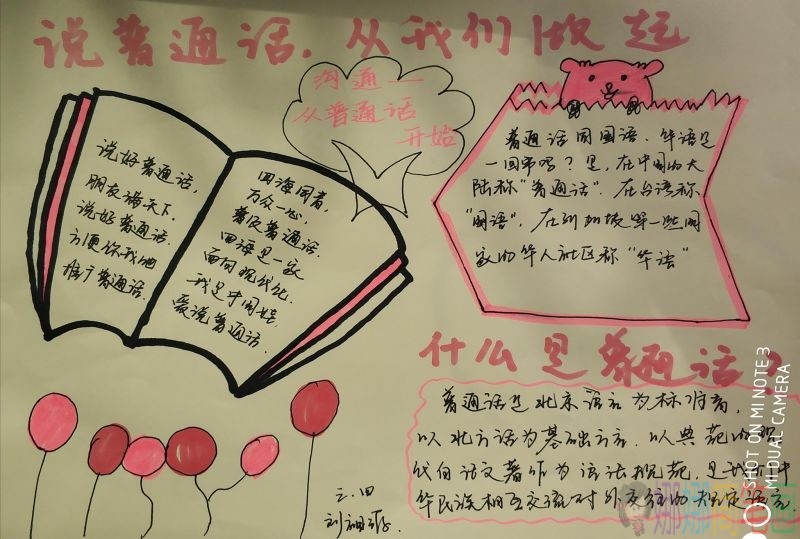 说普通话.从我们做起
沟通一
从普通话
开始
说好普通话,
朋友满天下.
说好普通话.
方便你我他
推广普通话.
四海同音,
万众一心,
普及普通话.
四海是一家
面向现代化.
我是中国娃.
爱说普通话.
普通话同国语、华语是
一回事吗?是,在中国的大
陆称"普通话".在台湾称
"国语".在新加坡等一些国
家的华人社区称"华语"
什么是普通话?
普通话是北京语言为标准音,
以北方话为基础方言.以典范的现
代白话文著作为语法规范,是我们中
华民族相互交流对外交往的规定语言.
三.四
SHOT ON MI NOTE 3
MI DUAL CAMERA
娜娜